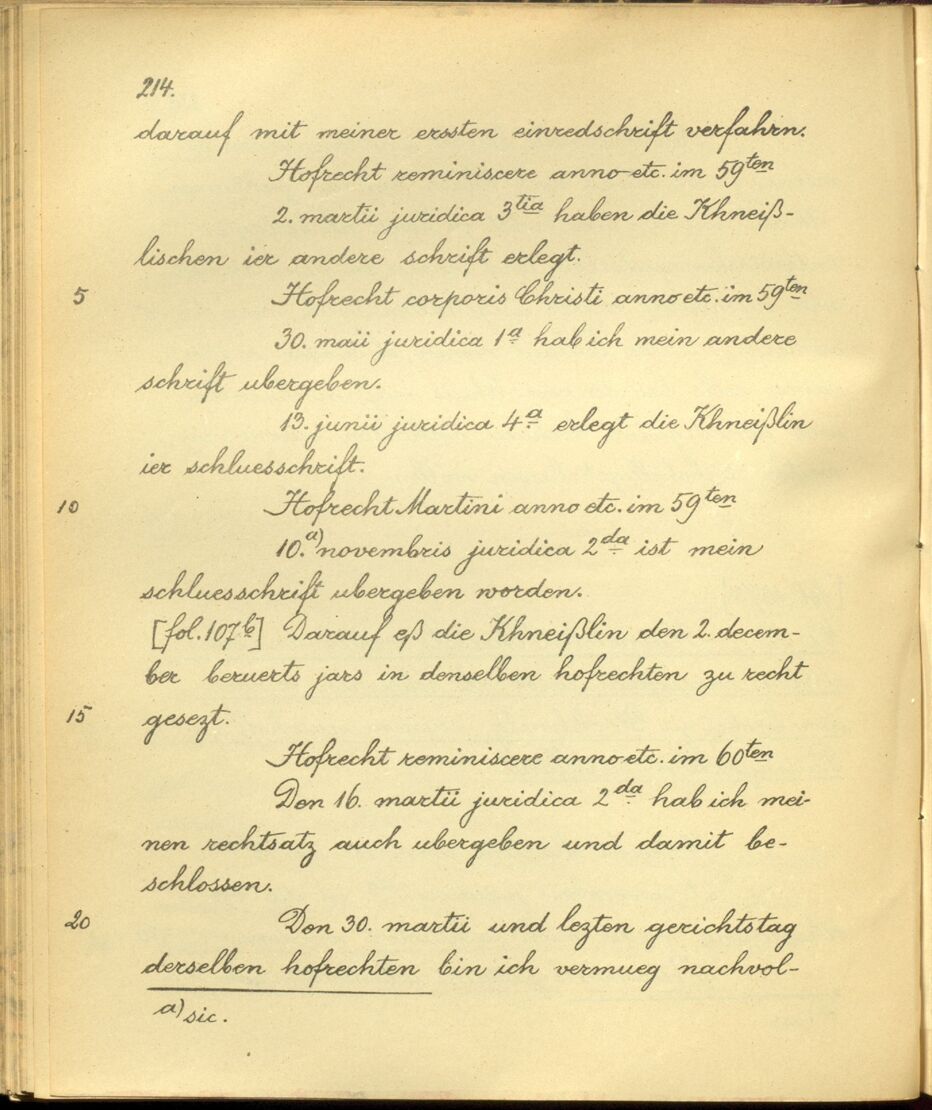 214.
darauf mit meiner erssten einredschrift verfahrn.
Hofrecht reminiscere anno etc. im 59ten
2. martii juridica 3tia haben die Khneiß-
lischen ier andere schrift erlegt.
5 Hofrecht corporis Christi anno etc. im 59ten
30. maii juridica 1a hab ich mein andere
schrift ubergeben.
13. junii juridica 4a erlegt die Khneißlin
ier schluesschrift.
10 Hofrecht Martini anno etc. im 59ten
10.a) novembris juridica 2da ist mein
schluesschrift ubergeben worden.
[fol. 107b] Darauf eß die Khneißlin den 2. decem-
ber beruerts jars in denselben hofrechten zu recht
15 gesezt.
Hofrecht reminiscere anno etc. im 60ten
Den 16. martii juridica 2da hab ich mei-
nen rechtsatz auch ubergeben und damit be-
schlossen.
20 Den 30. martii und lezten gerichtstag
derselben hofrechten bin ich vermueg nachvol-
a) sic.